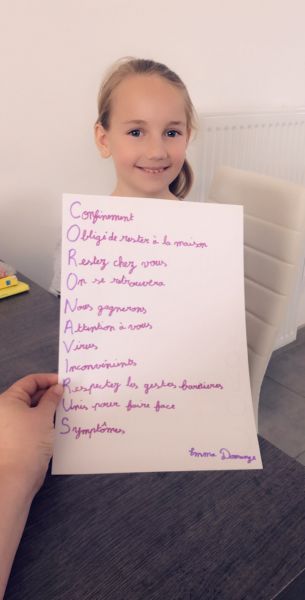 Confinement
Obligé de rester à la maison
Restez chez vous
On se retrouvera
Nous gagnerons
Attention à vous
Virus
Inconvénients
Respectez les gestes barrières
Unis pour faire face
Symptômes
Emma